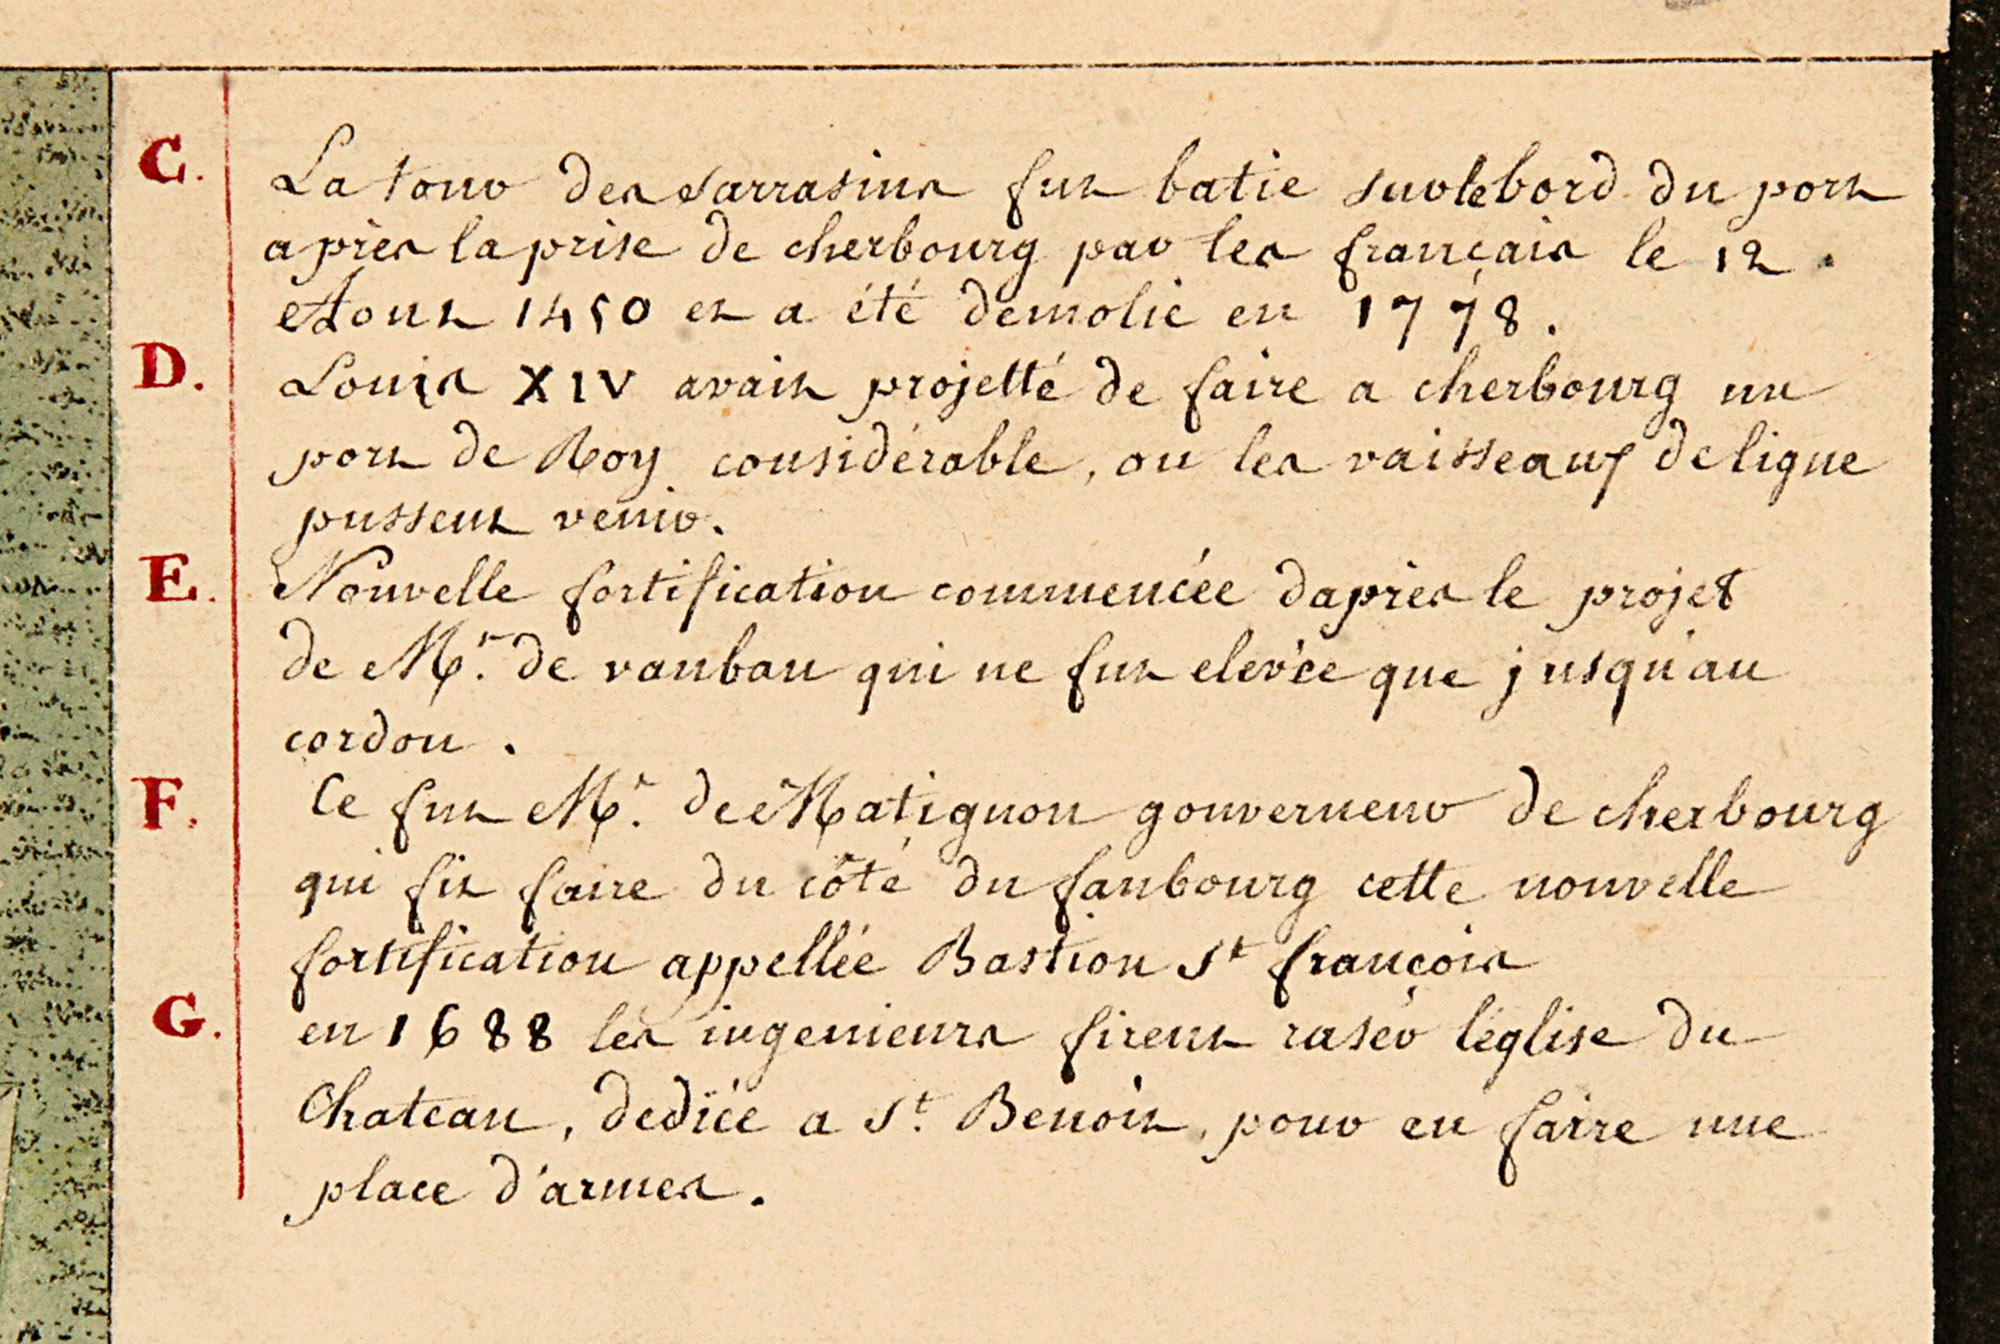 C. La tour des sarrasins fut batie sur le bord du port
après la prise de cherbourg par les français le 12.
Aout 1450 et a été demolie en 1778.
D. Louis XIV avait projetté de faire a cherbourg un
port de Roy considérable, ou les vaisseaux de ligne
pussent venir.
E. Nouvelle fortification commencée daprès le projet
de Mr. de vauban qui ne fut elevée que jusqu'au
cordon.
F. Ce fut Mr. de Matignon gouverneur de cherbourg
qui fit faire du côté du faubourg cette nouvelle
fortification appellée Bastion St françois
G. en 1688 les ingenieurs firent raser l'église du
Chateau, dediée a St. Benoit, pour en faire une
place d'armes.